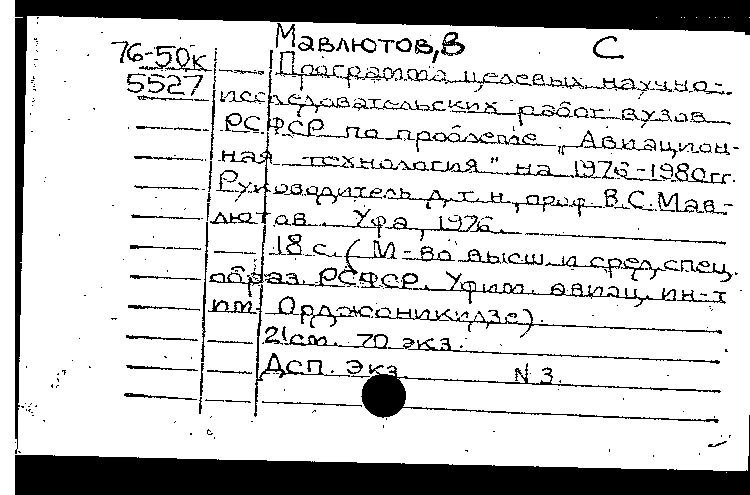 Мавлютов, В С
76-50к
Программа целевых научно-
5527
исследовательских работ вузов
РСФСР по проблеме „Авиацион-
ная технология" на 1976-1980гг.
Руководитель д.т.н., проф. В.С. Мав-
лютов. Уфа, 1976.
18 с. (М-во высш. и сред. спец.
образ. РСФСР. Уфим. авиац. ин-т
им. Орджоникидзе).
21см. 70 экз.
Дсп. Экз. N 3.